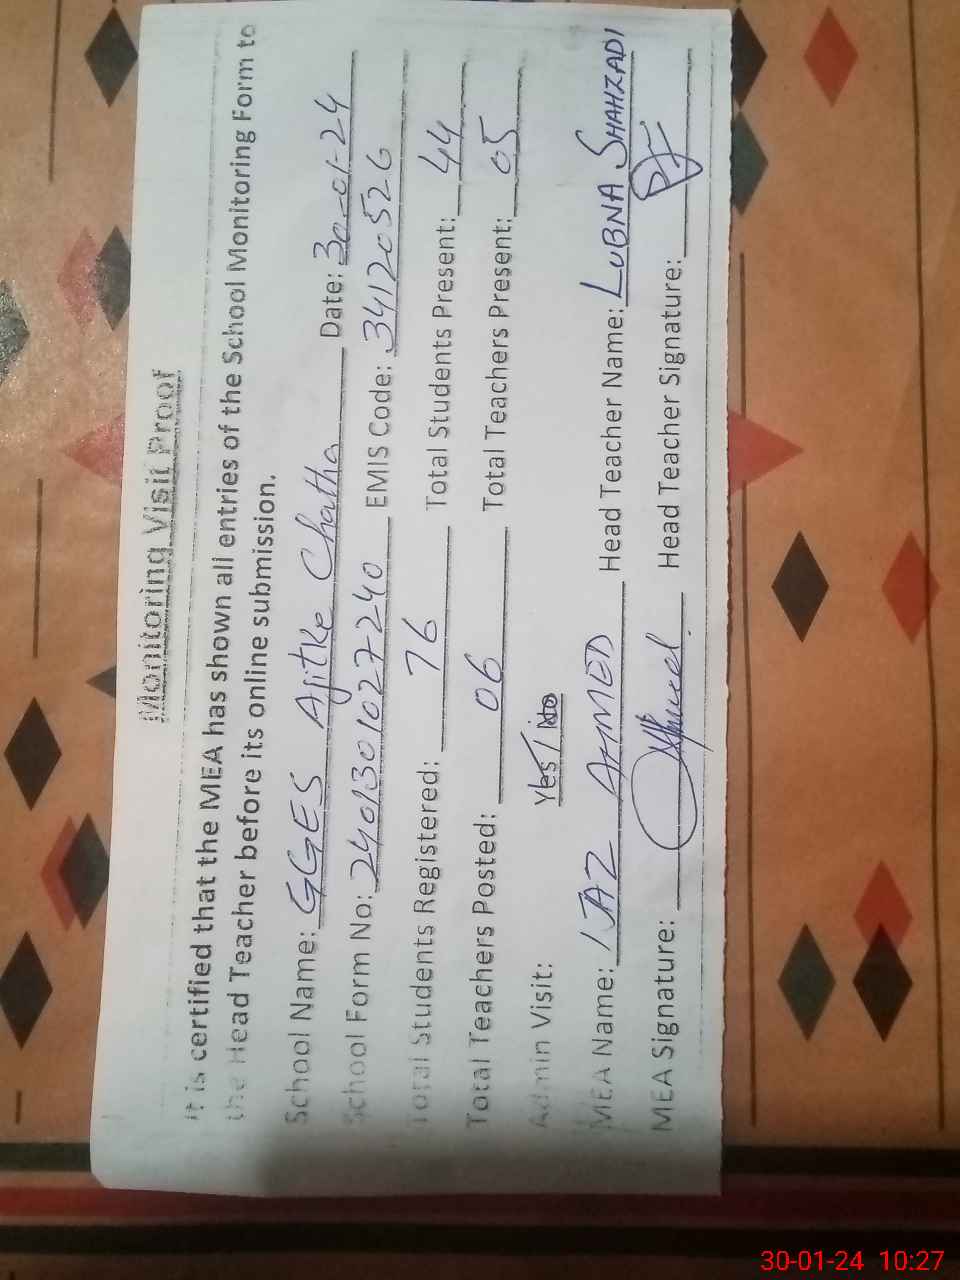 Monitoring Visit Proof
It is certified that the MEA has shown all entries of the School Monitoring Form to
the Head Teacher before its online submission.
School Name: GGES Ajitke Chatha Date: 30-01-24
School Form No: 2401301027240 EMIS Code: 34120526
Total Students Registered: 76 Total Students Present: 44
Total Teachers Posted: 06 Total Teachers Present: 05
Admin Visit: Yes / No
MEA Name: IJAZ AHMED Head Teacher Name: LUBNA SHAHZADI
MEA Signature: Head Teacher Signature:
30-01-24 10:27